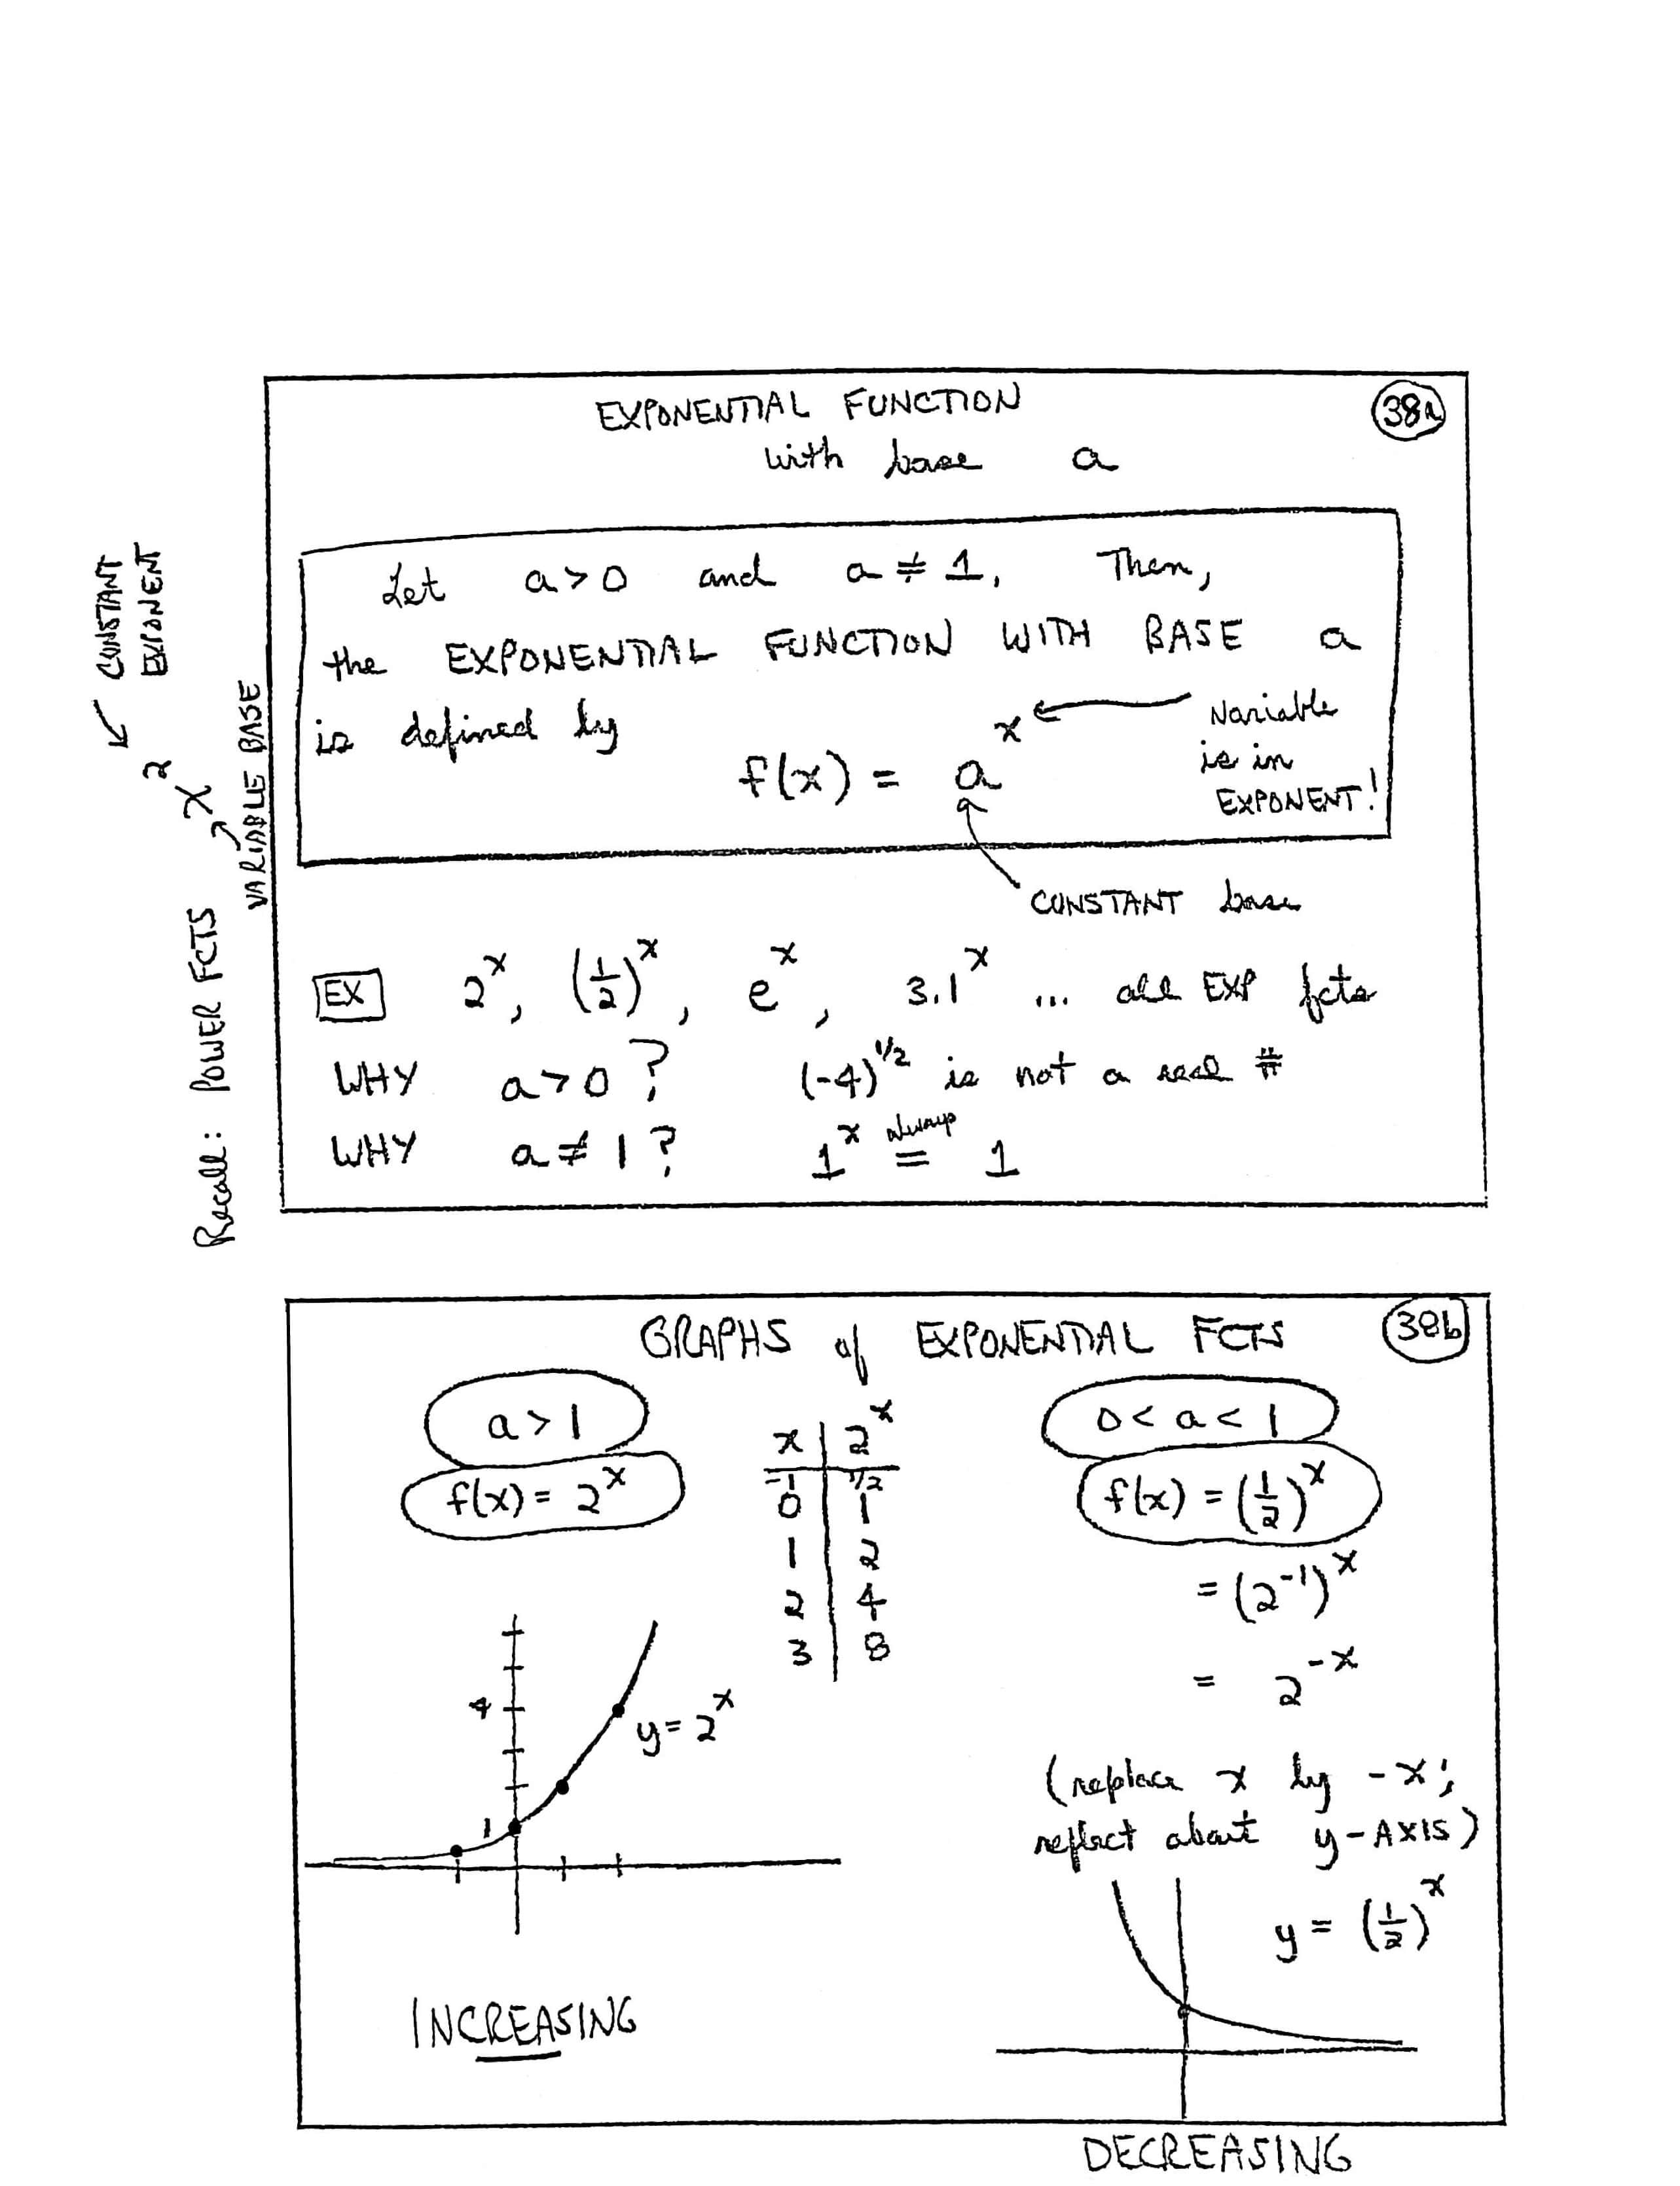 EXPONENTIAL FUNCTION
with base a
38a
Let a > 0 and a ≠ 1. Then,
the EXPONENTIAL FUNCTION WITH BASE a
is defined by
f(x) = a^x
Variable
is in
EXPONENT!
CONSTANT base
EX 2^x, (1/2)^x, e^x, 3.1^x ... all EXP fcts
WHY a > 0? (-4)^1/2 is not a real #
WHY a ≠ 1? 1^x always = 1
Recall: POWER FCTS x^2
VARIABLE BASE
CONSTANT
EXPONENT
GRAPHS of EXPONENTIAL FCTS
38b
a > 1
f(x) = 2^x
x | 2^x
-1 | 1/2
0 | 1
1 | 2
2 | 4
3 | 8
4
1
y = 2^x
INCREASING
0 < a < 1
f(x) = (1/2)^x
= (2^-1)^x
= 2^-x
(replace x by -x;
reflect about y-AXIS)
y = (1/2)^x
DECREASING